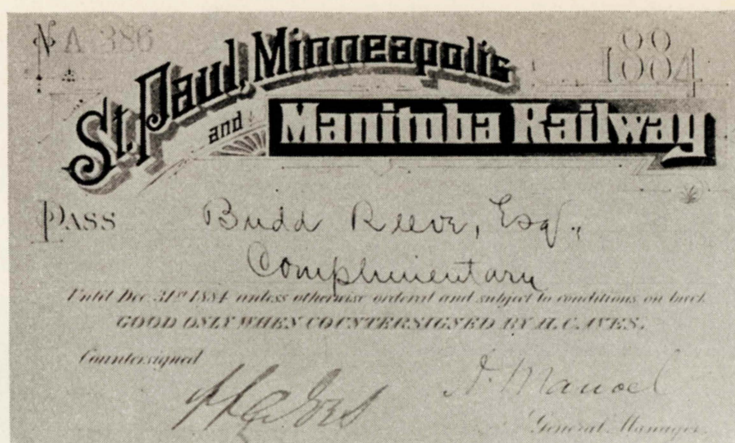 No A 386
1884
St. Paul, Minneapolis
and
Manitoba Railway
PASS Budd Reeve, Esq.,
Complimentary
Until Dec. 31st 1884 unless otherwise ordered and subject to conditions on back.
GOOD ONLY WHEN COUNTERSIGNED BY H. C. IVES.
Countersigned
H C Ives A. Manvel
General Manager.